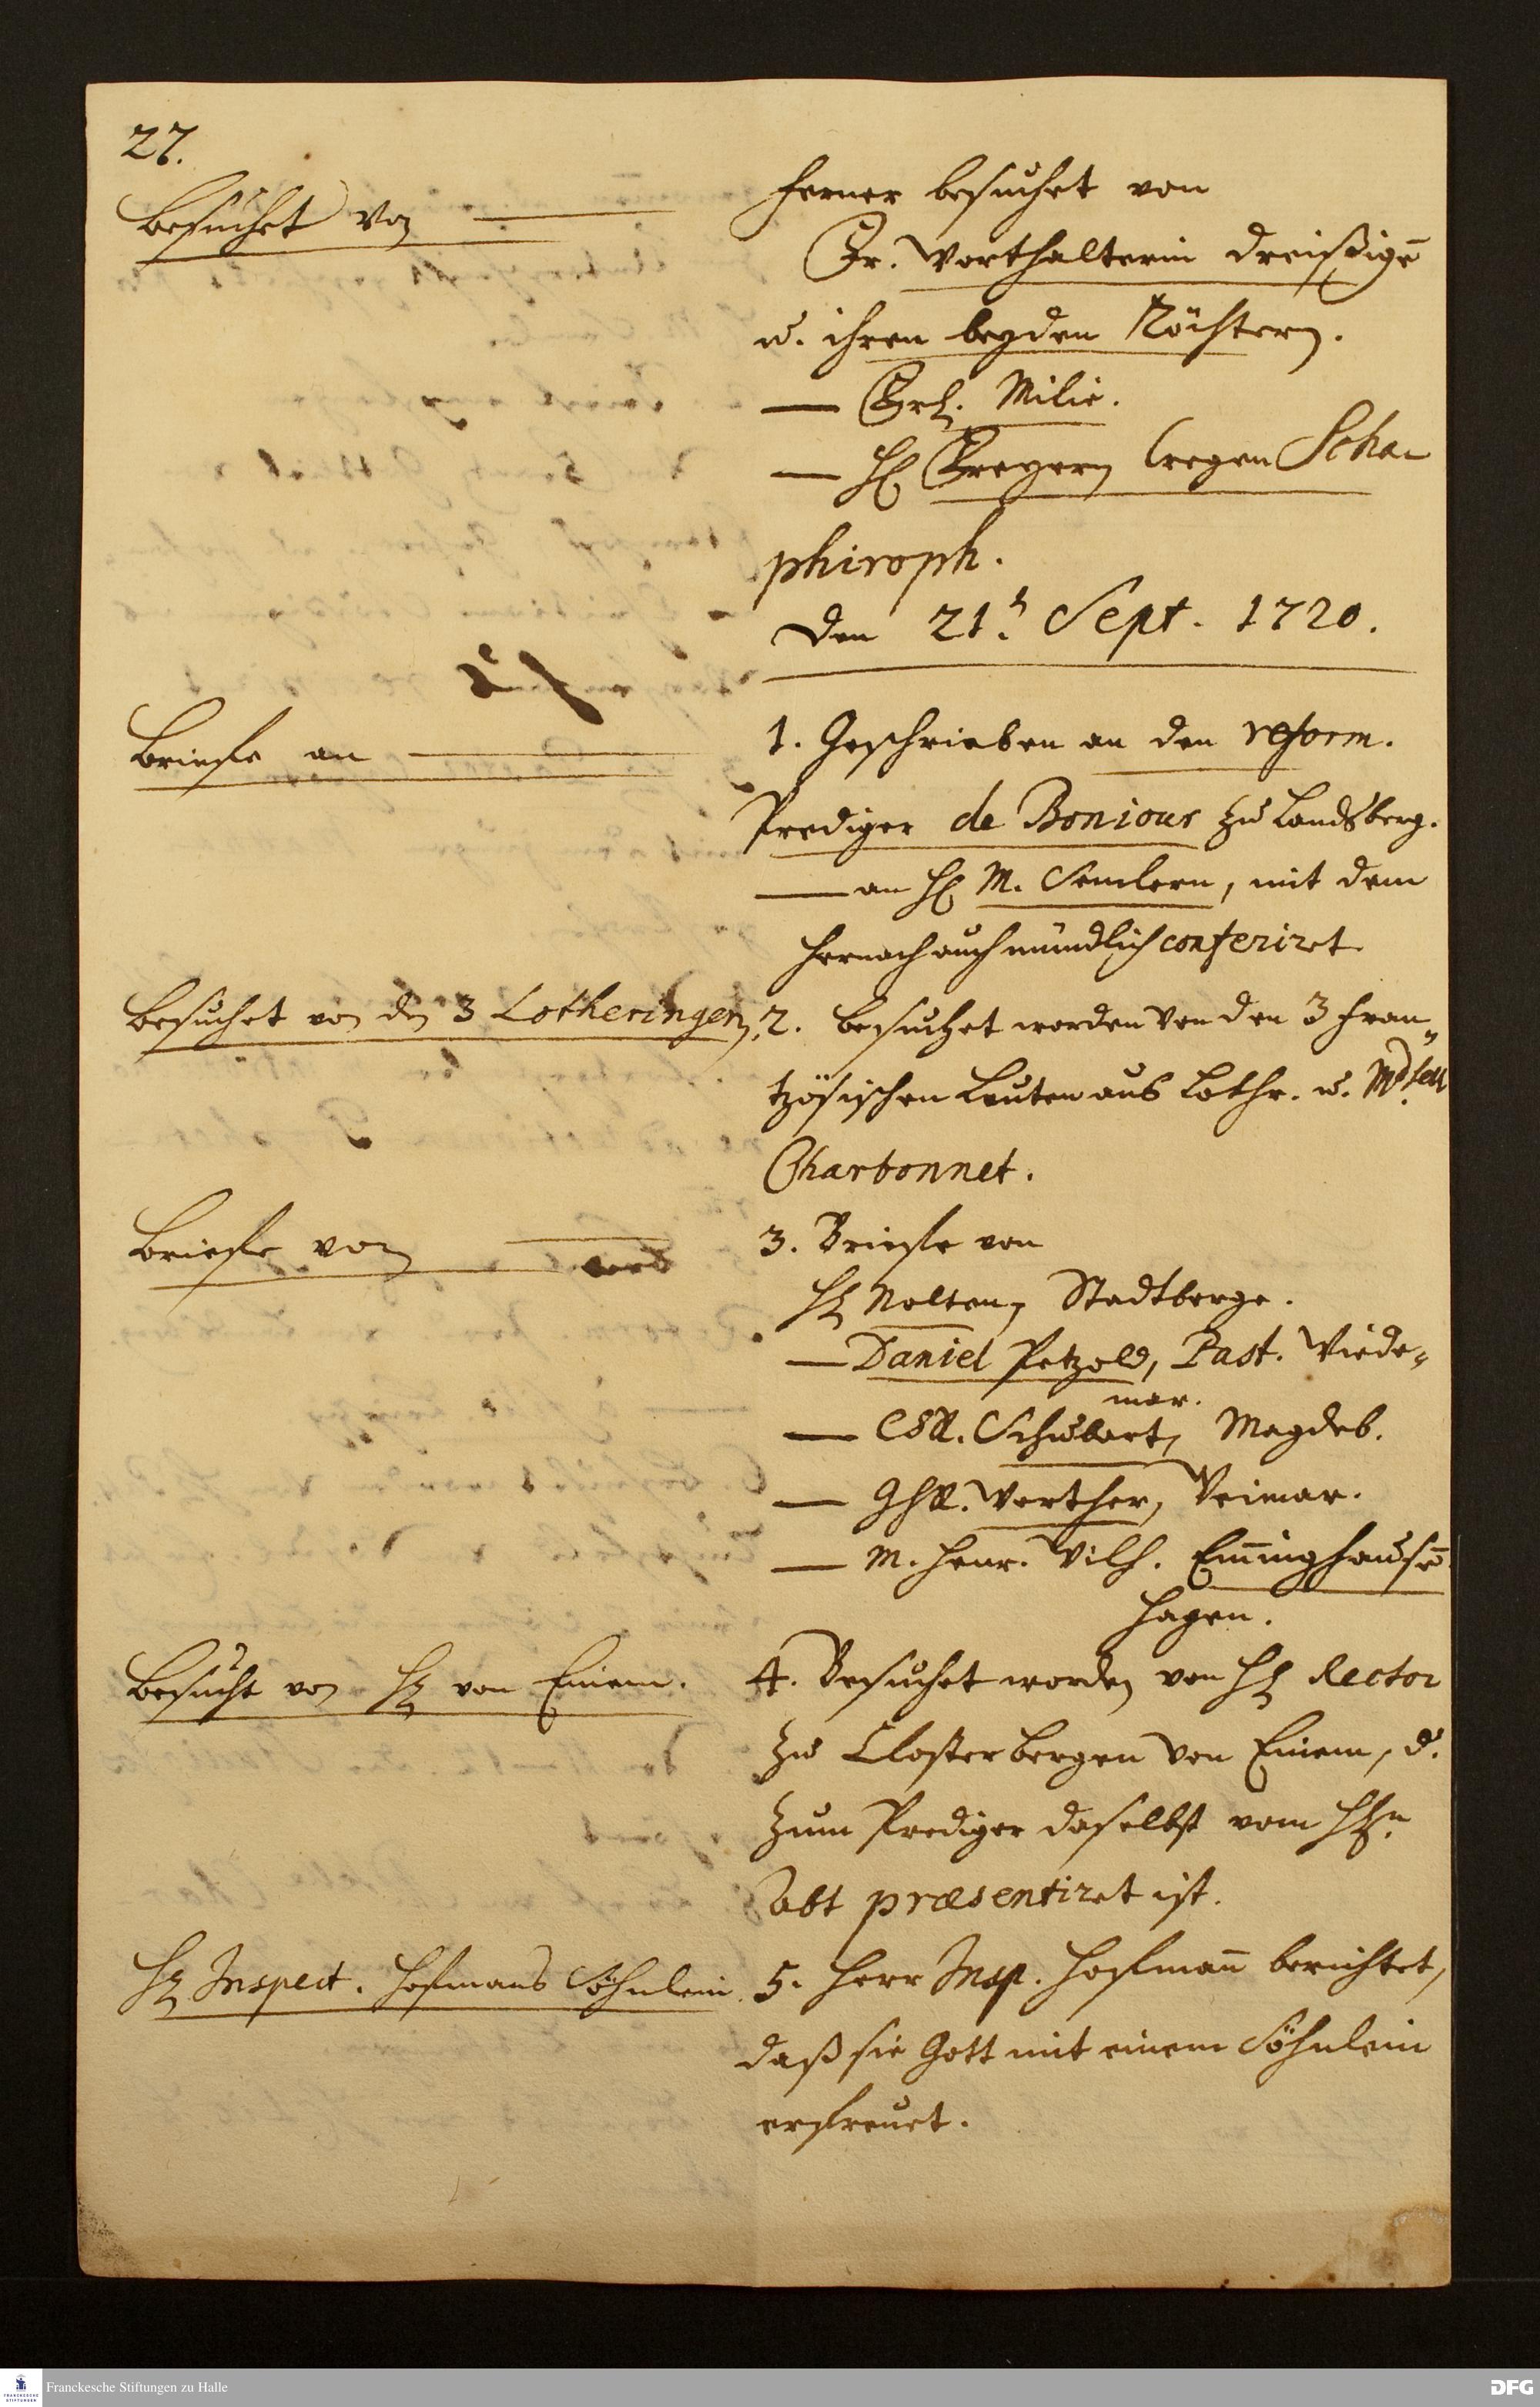 27.
Besuchet von
ferner besuchet von
Fr. Worthalterin Dreißigē
u. ihren beyden Töchtern.
— Frl. Milie.
— H. Freyern (regen Scha-
phiroph.
Den 21. Sept. 1720.
Briefe an
1. Geschrieben an den reform.
Prediger de Bonjour zu Landsberg.
— an H. M. Semlern, mit dem
hernach auch mündlich conferiret
Besuchet von den 3 Lotheringern.
2. besuchet worden von den 3 fran„
tzösischen Leuten aus Lothr. u. Mdsell
Charbonnet.
Briefe von
3. Briefe von
H. Nolten, Stadtberge.
— Daniel Petzold, Past. Wiede-
mar.
— Schubart, Magdeb.
— Werther, Weimar.
— M. Henr. Wilh. Em̄inghausē
Hagen.
Besucht von H. von Einem.
4. Besuchet worden von H. Rector
zu Closterbergen von Einem, d.
zum Prediger daselbst vom Hrn.
Abt præsentiret ist.
H. Inspect. Hofmans Söhnlein.
5. Herr Insp. Hofman̄ berichtet,
daß sie Gott mit einem Söhnlein
erfreuet.
Franckesche Stiftungen zu Halle
FRANCKESCHE STIFTUNGEN
DFG